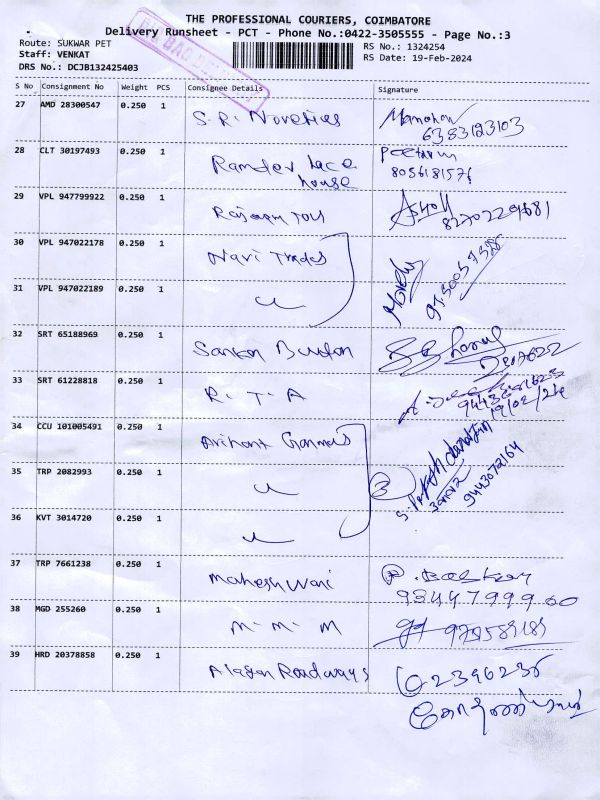 THE PROFESSIONAL COURIERS, COIMBATORE
Delivery Runsheet - PCT - Phone No.:0422-3505555 - Page No.:3
Route: SUKWAR PET
RS No.: 1324254
Staff: VENKAT
RS Date: 19-Feb-2024
DRS No.: DCJB132425403
S No Consignment No Weight PCS Consignee Details Signature
27 AMD 28300547 0.250 1 S.R. Novelties Manohar
6383123103
28 CLT 30197493 0.250 1 Ramdev Lace
house
8056181576
29 VPL 947799922 0.250 1 Rajaram Toy Ashok
8270229681
30 VPL 947022178 0.250 1 Navi Trades
31 VPL 947022189 0.250 1
32 SRT 65188969 0.250 1 Sankar Button
33 SRT 61228818 0.250 1 R. T. A
19/02/24
34 CCU 101005491 0.250 1 Arihant Garments
35 TRP 2082993 0.250 1 3
9443072164
36 KVT 3014720 0.250 1
37 TRP 7661238 0.250 1 Maheshwari P. Baskar
9344799960
38 MGD 255260 0.250 1 M. M. M
39 HRD 20378858 0.250 1 Alagan Roadways